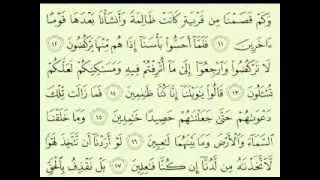 وَكَمْ قَصَمْنَا مِن قَرْيَةٍ كَانَتْ ظَالِمَةً وَأَنشَأْنَا بَعْدَهَا قَوْمًا
ءَاخَرِينَ ١١ فَلَمَّآ أَحَسُّوا۟ بَأْسَنَآ إِذَا هُم مِّنْهَا يَرْكُضُونَ ١٢
لَا تَرْكُضُوا۟ وَٱرْجِعُوٓا۟ إِلَىٰ مَآ أُتْرِفْتُمْ فِيهِ وَمَسَـٰكِنِكُمْ لَعَلَّكُمْ
تُسْـَٔلُونَ ١٣ قَالُوا۟ يَـٰوَيْلَنَآ إِنَّا كُنَّا ظَـٰلِمِينَ ١٤ فَمَا زَالَت تِّلْكَ
دَعْوَىٰهُمْ حَتَّىٰ جَعَلْنَـٰهُمْ حَصِيدًا خَـٰمِدِينَ ١٥ وَمَا خَلَقْنَا
ٱلسَّمَآءَ وَٱلْأَرْضَ وَمَا بَيْنَهُمَا لَـٰعِبِينَ ١٦ لَوْ أَرَدْنَآ أَن نَّتَّخِذَ لَهْوًا
لَّٱتَّخَذْنَـٰهُ مِن لَّدُنَّآ إِن كُنَّا فَـٰعِلِينَ ١٧ بَلْ نَقْذِفُ بِٱلْحَقِّ